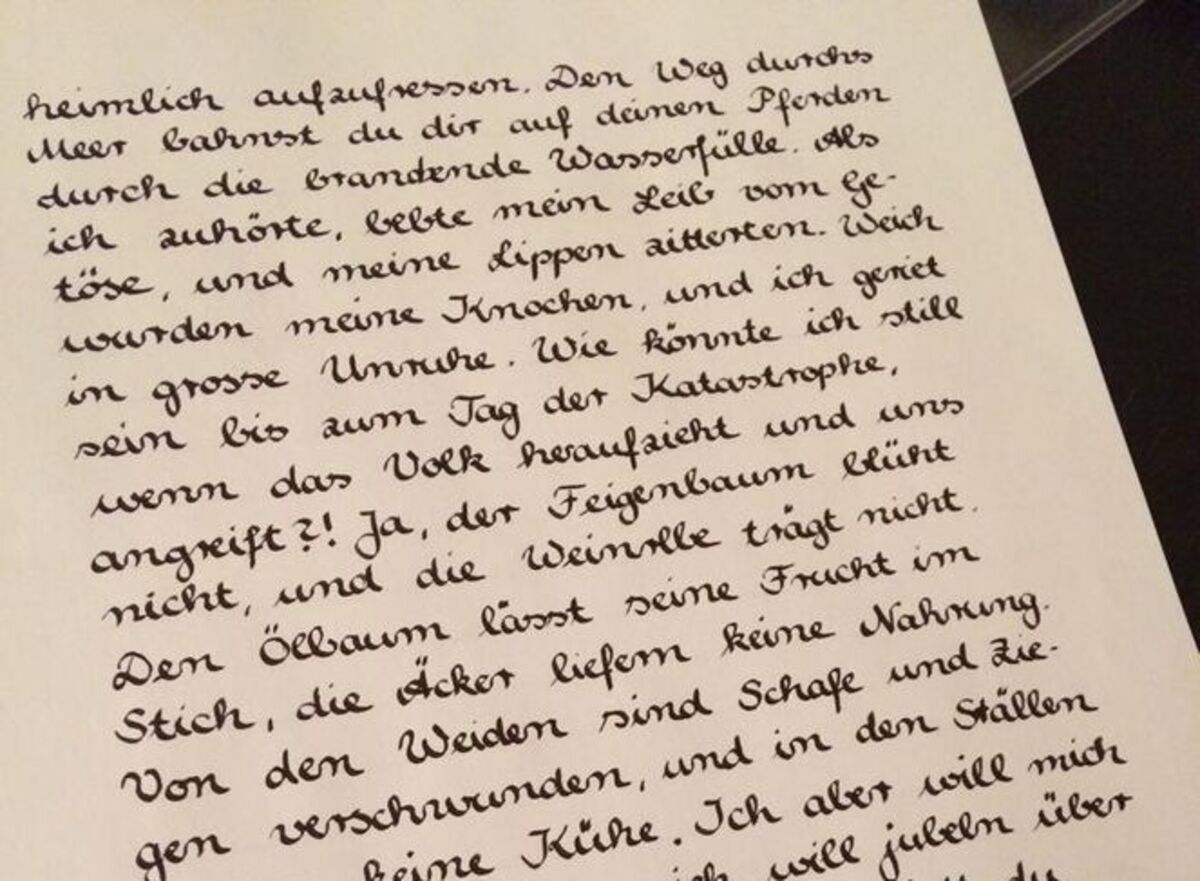 heimlich aufzufressen. Den Weg durchs
Meer bahnst du dir auf deinen Pferden
durch die brandende Wasserfülle. Als
ich zuhörte, bebte mein Leib vom Ge-
töse, und meine Lippen zitterten. Weich
wurden meine Knochen, und ich geriet
in grosse Unruhe. Wie könnte ich still
sein bis zum Tag der Katastrophe,
wenn das Volk heraufzieht und uns
angreift?! Ja, der Feigenbaum blüht
nicht, und die Weinrebe trägt nicht.
Den Ölbaum lässt seine Frucht im
Stich, die Äcker liefern keine Nahrung.
Von den Weiden sind Schafe und Zie-
gen verschwunden, und in den Ställen
keine Kühe. Ich aber will mich
will jubeln über
du